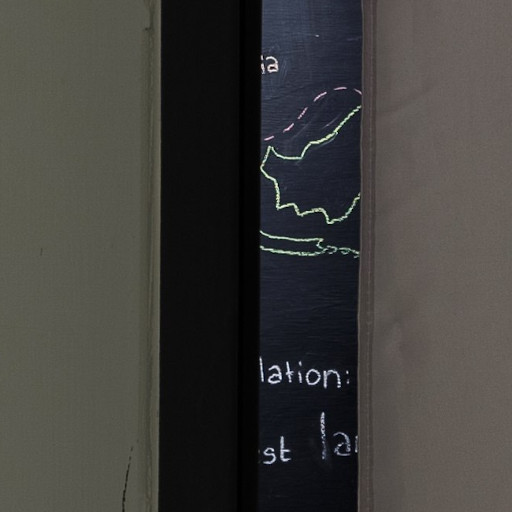 ia
lation:
st la